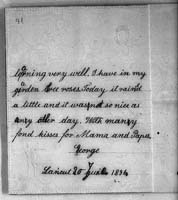 lorning very well. I have in my
garden tree roses. Today it raind
a little and it was not so nice as
any other day. With many
fond kisses for Mama and Papa
George
Lańcut 1894